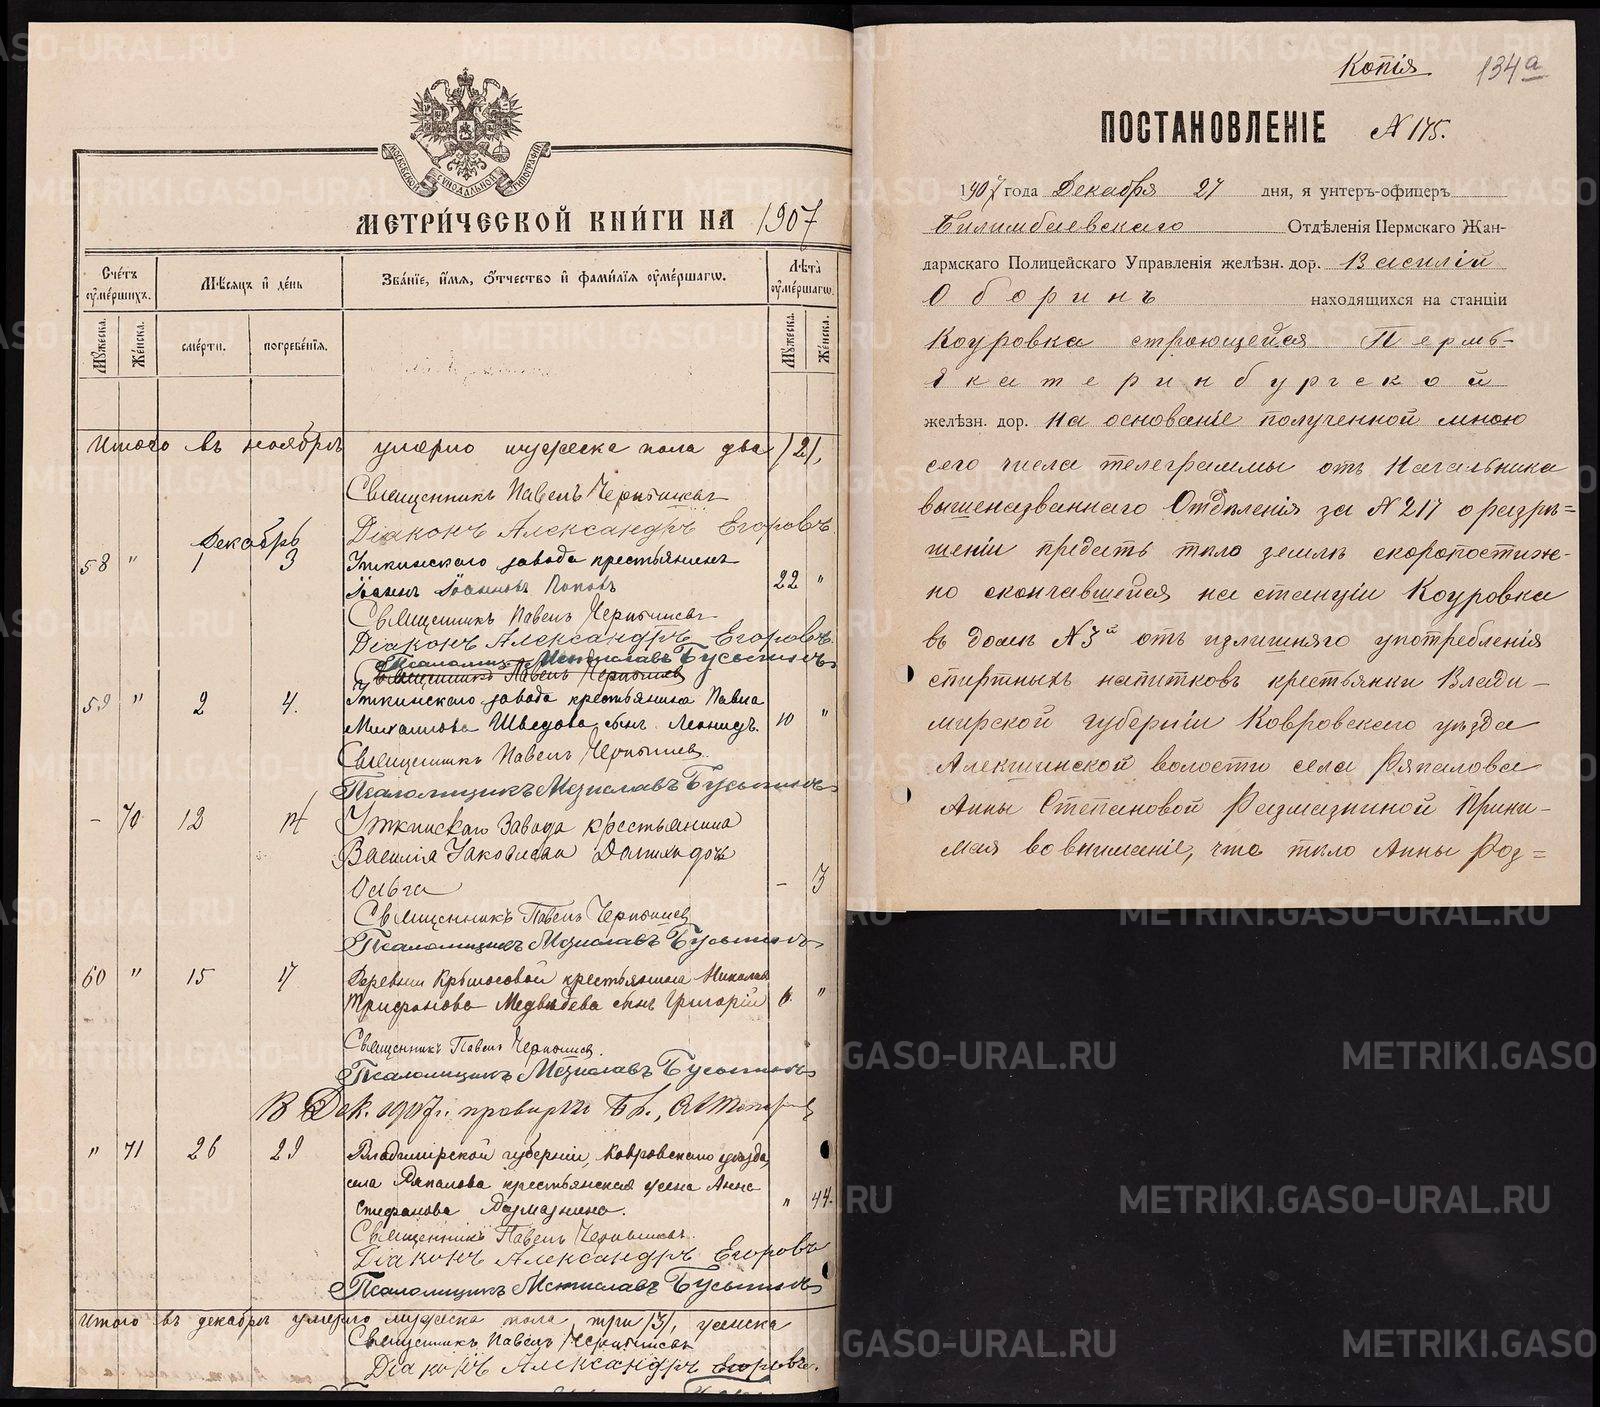 МОСКОВСКОЙ СѴНОДАЛЬНОЙ ТИПОГРАФІИ
МЕТРИ́ЧЕСКОЙ КНИ́ГИ НА 1907
Сче́тъ оумершихъ.
Мѣсяцъ и день
Зва́ніе, и́мя, о́тчество и фами́лія оуме́ршаго.
Лѣта оуме́ршаго.
Мужеска.
Женска.
смерти.
погребе́нія.
Мужеска.
Женска.
Итого въ ноябрѣ умерло мужеска пола два /2/,
Священникъ Павелъ
Діаконъ Александръ Егоровъ
Декабрь
58 " 1 3 Уткинскаго завода крестьянинъ
Іоаннъ Іоанновъ Поповъ 22 "
Священникъ Павелъ
Діаконъ Александръ Егоровъ
Псаломщикъ Мстиславъ
Священникъ Павелъ
59 " 2 4. Уткинскаго завода крестьянина Павла
Михаилова Шведова сынъ Леонидъ. 10 "
Священникъ Павелъ
Псаломщикъ Мстиславъ
- 70 12 14 Уткинскаго Завода крестьянина
Василія Іаковлева дочь
Ольга - 3
Священникъ Павелъ
Псаломщикъ Мстиславъ
60 " 15 17 Деревни крестьянина Николая
Трифонова Медвѣдева сынъ Григорій 6. "
Священникъ Павелъ
Псаломщикъ Мстиславъ
18 Дек. 1907 г.
" 71 26 29 Владимірской губерніи, Ковровскаго уѣзда,
села Ряпалова крестьянская жена Анна
Стефанова Размазнина. " 44.
Священникъ Павелъ
Діаконъ Александръ Егоровъ
Псаломщикъ Мстиславъ
Итого въ декабрѣ умерло мужеска пола три /3/, женска
Священникъ Павелъ
Діаконъ Александръ Егоровъ.
Копія 134а
ПОСТАНОВЛЕНІЕ № 175.
1907 года Декабря 27 дня, я унтеръ-офицеръ
Билимбаевскаго Отдѣленія Пермскаго Жан-
дармскаго Полицейскаго Управленія желѣзн. дор. Василій
Оборинъ находящихся на станціи
Коуровка строющейся Пермь-
Екатеринбургской
желѣзн. дор. на основаніе полученной мною
сего числа телеграммы отъ Начальника
вышеназваннаго Отдѣленія за № 217 о разрѣ=
шеніи предать тѣло землѣ скоропостиж-
но скончавшейся на станціи Коуровка
въ домѣ № 3й отъ излишняго употребленія
спиртныхъ напитковъ крестьянки Влади-
мирской губерніи Ковровскаго уѣзда
Алекшинской волости села Ряпалова
Анны Степановой Размазниной Прини-
мая во вниманіе, что тѣло Анны Роз=
METRIKI.GASO-URAL.RU